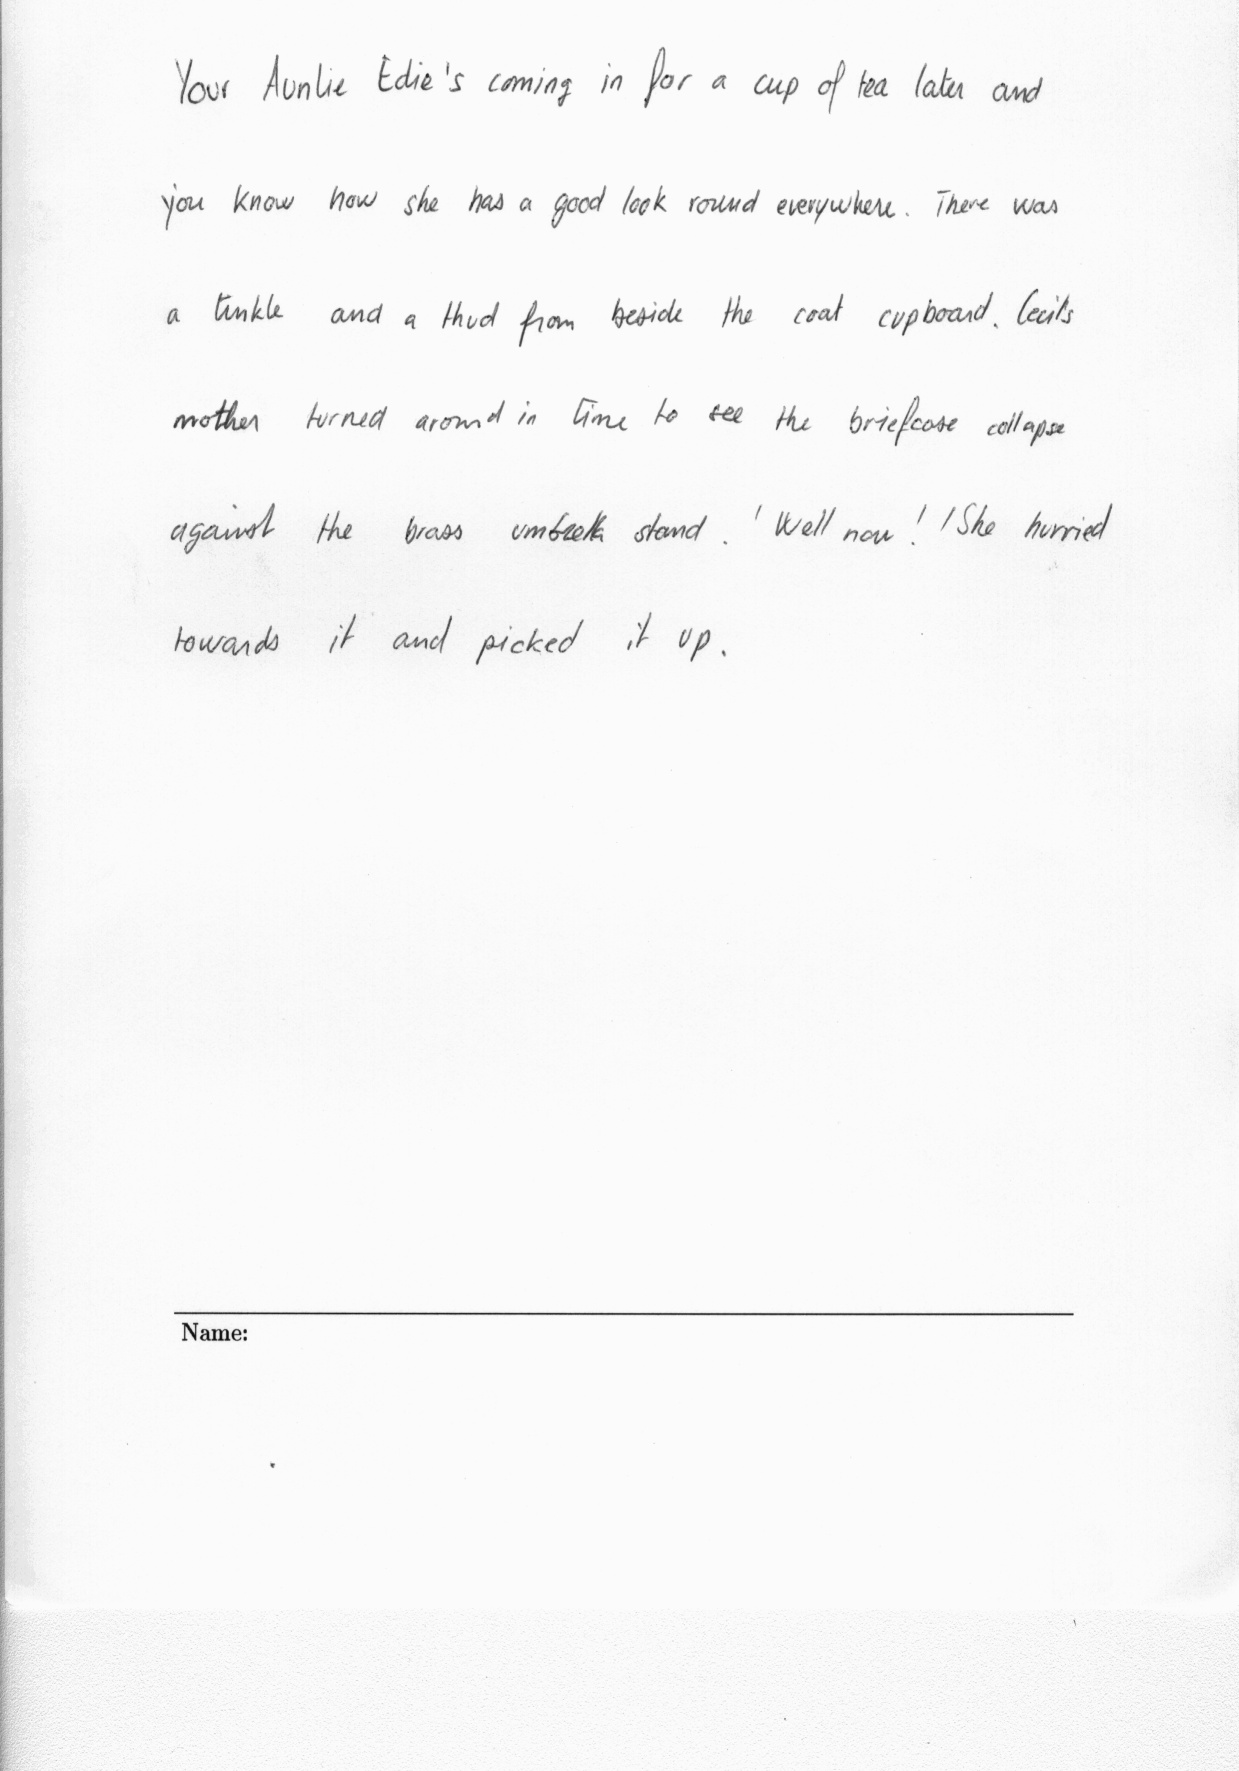 Your Auntie Edie's coming in for a cup of tea later and
you know how she has a good look round everywhere. There was
a tinkle and a thud from beside the coat cupboard. Cecil's
mother turned around in time to see the briefcase collapse
against the brass stand. 'Well now!' She hurried
towards it and picked it up.
Name: